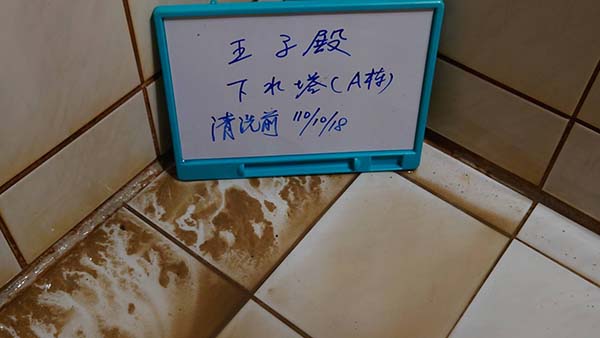 王子殿
下水塔(A栋)
清洗前 110/10/18